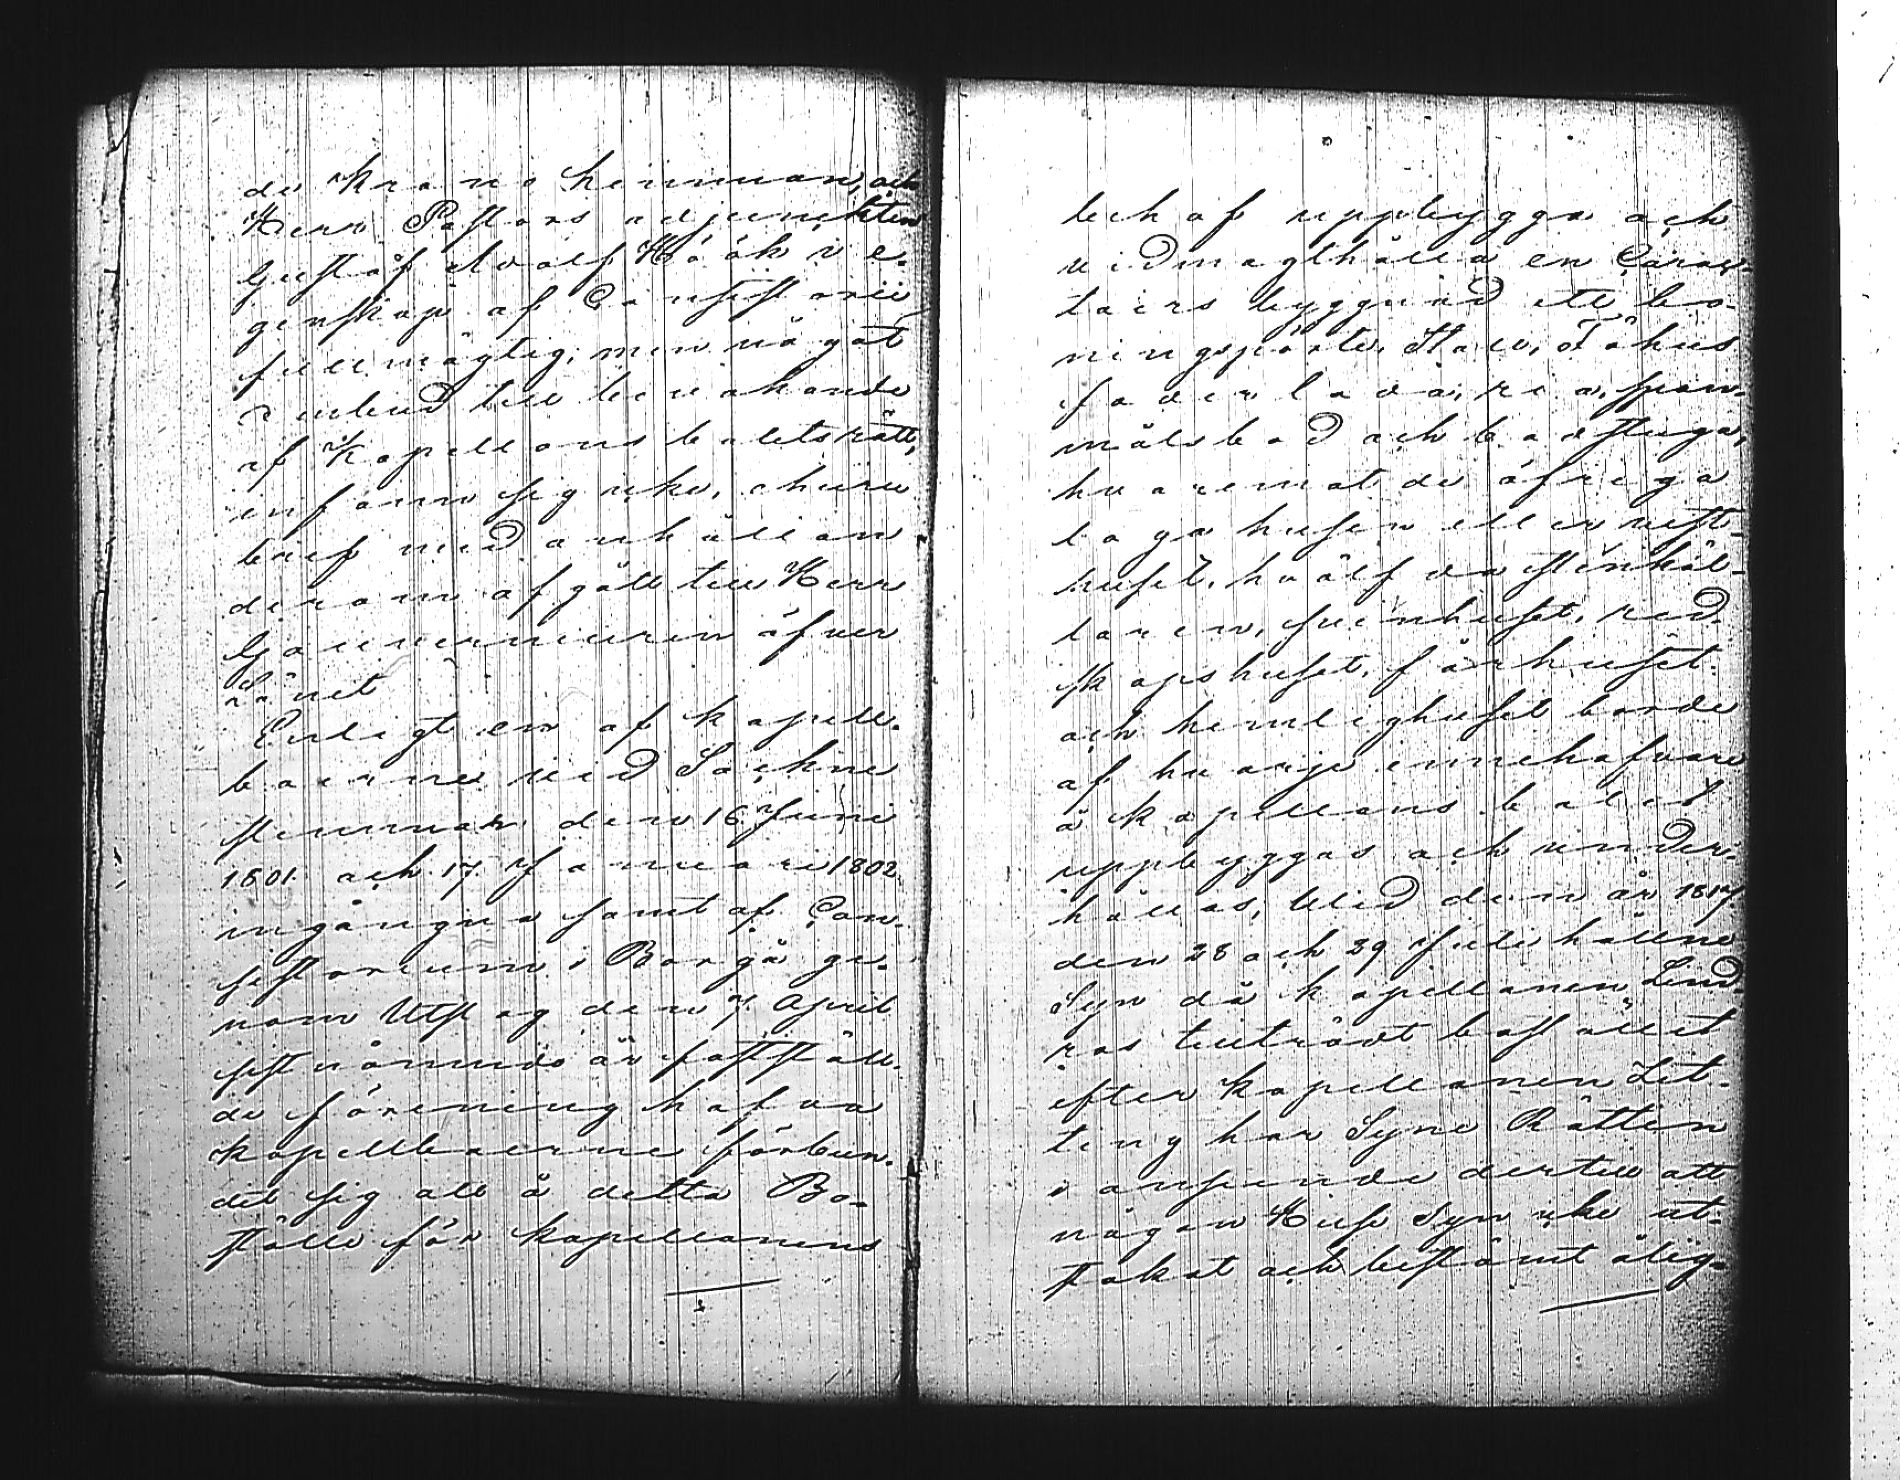 de Krono hemman, och
Herr Pastors adjunckten
Gustaf Adolf Höök i e-
genskap af Consistorii
fullmägtig; men något
ombud till bevakande
af Kapellans bolets rätt,
infann sig icke, ehuru
bref med anhållan
derom afgått till Herr
Gouverneuren öfver
Länet
Enligt en af kapell-
boerne vid Sockne
stemmor den 16 Junii
1801 och 17 Januari 1802
ingångne samt af Con-
sistorium i Borgå ge-
nom Utslag den 7 April
sistnämnde år fastställ-
de förening hafva
kapellboerne förbun-
dit sig att å detta Bo-
ställe för kapellanens
behof uppbygga och
vidmagthålla en Carac-
tairs byggnad ett bo-
ningspörte, Stall, Fähus
foderlada, ria, span-
målsbod och badstuga,
hvaremot de öfrige
laga husen eller visst
huset, hvälfda stenkäl-
laren, svinhuset, red-
skapshuset, fårhuset
och hemlighuset borde
af hvarje innehafvare
å kapellans bolet
uppbyggas och under-
hållas. Vid den år 1817
den 28 och 29 Julii hållne
Syn då kapellanen Lind-
ros tillträdt bostället
efter kapellanen Lit-
ting har Syne Rätten
i anseende dertill att
någon Huse Syn icke ut-
stakat och bestämt ålig-